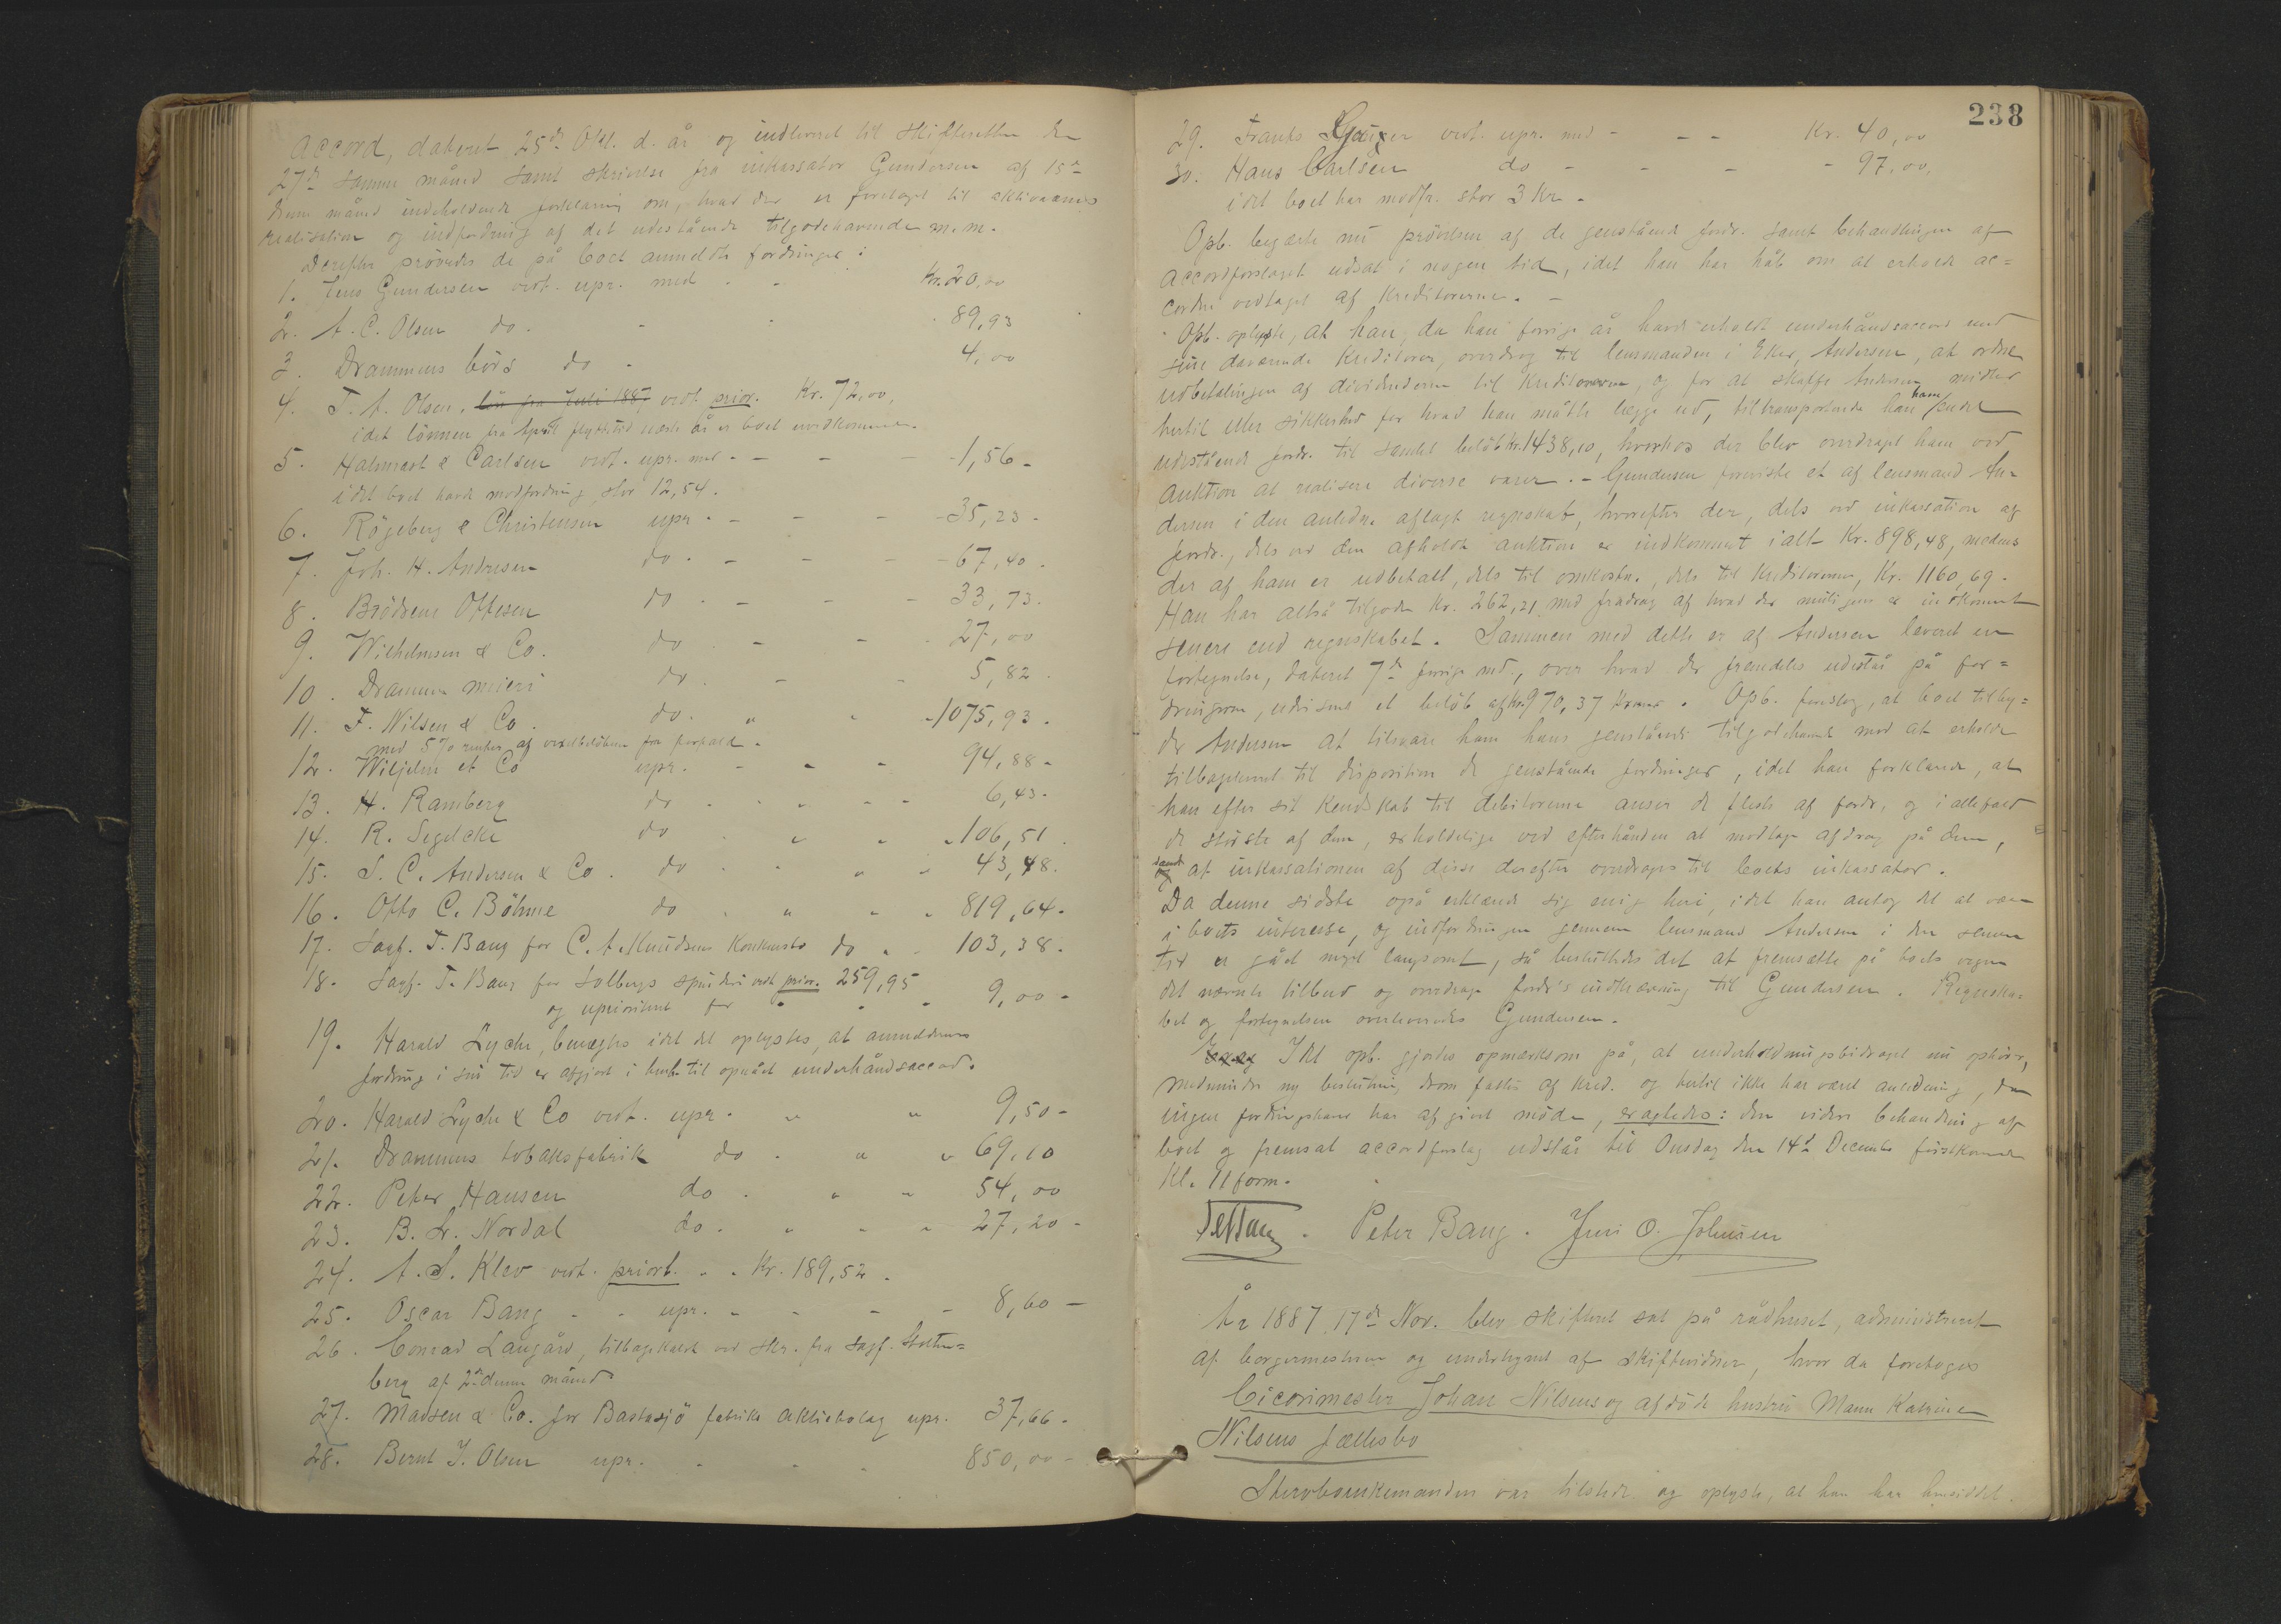 accord, dateret 25de Okt. d. år og indleveret til skifteretten den
27de samme måned samt skrivelse fra inkassator Gundersen af 15de
denne måned indeholdende forklaring om, hvad der er foretaget til aktivaernes
realisation og indfordring af det udestående tilgodehavende m.m.
Derefter prøvedes de på boet anmeldte fordringer:
1. Jens Gundersen vedt. upr. med - - Kr. 20,00
2. A. C. Olsen do. - - 89,93
3. Drammens börs do - 4,00
4. T. A. Olsen, lön fra Juli 1887 vedt. prior. Kr. 72,00,
idet lönnen fra April flyttetid næste år er boet uvedkommende.
5. Halmrast & Carlsen vedt. upr. med - - - - 1,56 -
idet boet havde modfordring stor 12,54.
6. Rögeberg & Christensen upr. - - - - 35,23 -
7. Joh. H. Andresen do. - - - 67,40.
8. Brödrene Ottesen do. - - - 33,73.
9. Wilhelmsen & Co. do - - - 27,00
10. Drammens meieri do. - - 5,82.
11. F. Nilsen & Co. do. " " - 1075,93.
med 5% renter af vexelbelöbene fra forfald.
12. Wiljelm et Co upr. - - - 94,88 -
13. H. Ramberg do - - - - 6,43 -
14. R. Segelcke do - " - " 106,51.
15. S. C. Andersen & Co. do - - " - 43,48.
16. Otto C. Böhme do. " " " 819,64.
17. Sagf. T. Bang for C. A. Knudsens Konkursbo do " - 103,38.
18. Sagf. T. Bang for Solbergs spinderi vedt prior. 259,95
og uprioriteret for " " " 9,00 -
19. Harald Lyche, benægtes idet det oplystes, at anmelderens
fordring i sin tid er afgjort i henh. til opnået underhåndsaccord.
20. Harald Lyche & Co vedt. upr. " " 9,50 -
21. Drammens tobaksfabrik do. " " 69,10
22. Peter Hansen do. " " 54,00
23. B. L. Nordal do. " - " 27,20 -
24. A. S. Klev vedt. priort. - - Kr. 189,52.
25. Oscar Bang - - upr. - - - - 8,60 -
26. Conrad Langård, tilbagekaldt ved skr. fra sagf. Stolten=
berg af 2den denne måned
27. Madsen & Co. for Bastasjö fabriks aktiebolag upr. 37,66 -
28. Bernt J. Olsen upr. - - - 850,00 -
238
29. Frants vedt. upr. med - - - Kr. 40,00
30. Hans Carlsen do - - - - 97,00,
idet boet har modfr. stor 3 Kr. -
Opb. begærte nu prövelsen af de genstående fordr. samt behandlingen af
accordforslaget udsat i nogen tid, idet han har håb om at erholde ac=
corden vedtaget af Kreditorerne. -
Opb. oplyste, at han, da han forrige år havde erholdt underhåndsaccord med
sine daværende Kreditorer, overdrog til lensmanden i Eker, Andersen, at ordne
udbetalingen af dividenderne til Kreditorerne, og for at skaffe Andersen midler
hertil eller sikkerhed for hvad han måtte lægge ud, tiltransporterede han ham endel
udestående fordr. til samlet belöb Kr. 1438,10, hvorhos der blev overdraget ham ved
auktion at realisere diverse varer. - Gundersen foreviste et af lensmand An=
dersen i den anledn. aflagt regnskab, hvorefter der, dels ved inkassation af
fordr., dels ved den afholdte auktion er indkommet ialt Kr. 898,48, medens
der af ham er udbetalt, dels til omkostn., dels til Kreditorerne, Kr. 1160,69.
Han har altså tilgode Kr. 262,21 med fradrag af hvad der muligens er indkommet
senere end regnskabet. Sammen med dette er af Andersen leveret en
fortegnelse, dateret 7de forrige md., over hvad der fremdeles udestår på for=
dringerne, udvisende et belöb af Kr. 970,37 Kroner. Opb. foreslog, at boet tilby=
der Andersen at tilsvare ham hans genstående tilgodehavende mod at erholde
tilbageleveret til disposition de genstående fordringer, idet han forklarede, at
han efter sit kendskab til debitorerne anser de fleste af fordr., og i allefald
de störste af dem, erholdelige ved efterhånden at modtage afdrag på dem,
samt at inkassationen af disse derefter overdrages til boets inkassator.
Da denne sidste også erklærede sig enig heri, idet han antog det at være
i boets interesse, og indfordringen gennem lensmand Andersen i den senere
tid er gået meget langsomt, så besluttedes det at fremsætte på boets vegne
det nævnte tilbud og overdrage fordr's inddrivning til Gundersen. Regnska=
bet og fortegnelsen overleveredes Gundersen.
Idet opb. gjordes opmærksom på, at underholdningsbidraget nu ophörer,
medmindre ny beslutning derom fattes af kred. og hertil ikke har været anledning, da
ingen fordringshaver har afgivet möde, eragtedes: den videre behandling af
boet og fremsat accordforslag udstår til Onsdag den 14de December förstkommende
Kl. 11 form.
Peter Bang. Jens O. Johnsen
År 1887 17de Nov. blev skifteret sat på rådhuset, administreret
af borgermesteren og undertegnet af skiftevidner, hvor da foretoges
Cicorimester Johan Nilsens og afdöde hustru Maren Katrine
Nilsens fællesbo
Stervboenkemanden var tilstede og oplyste, at han har hensiddet